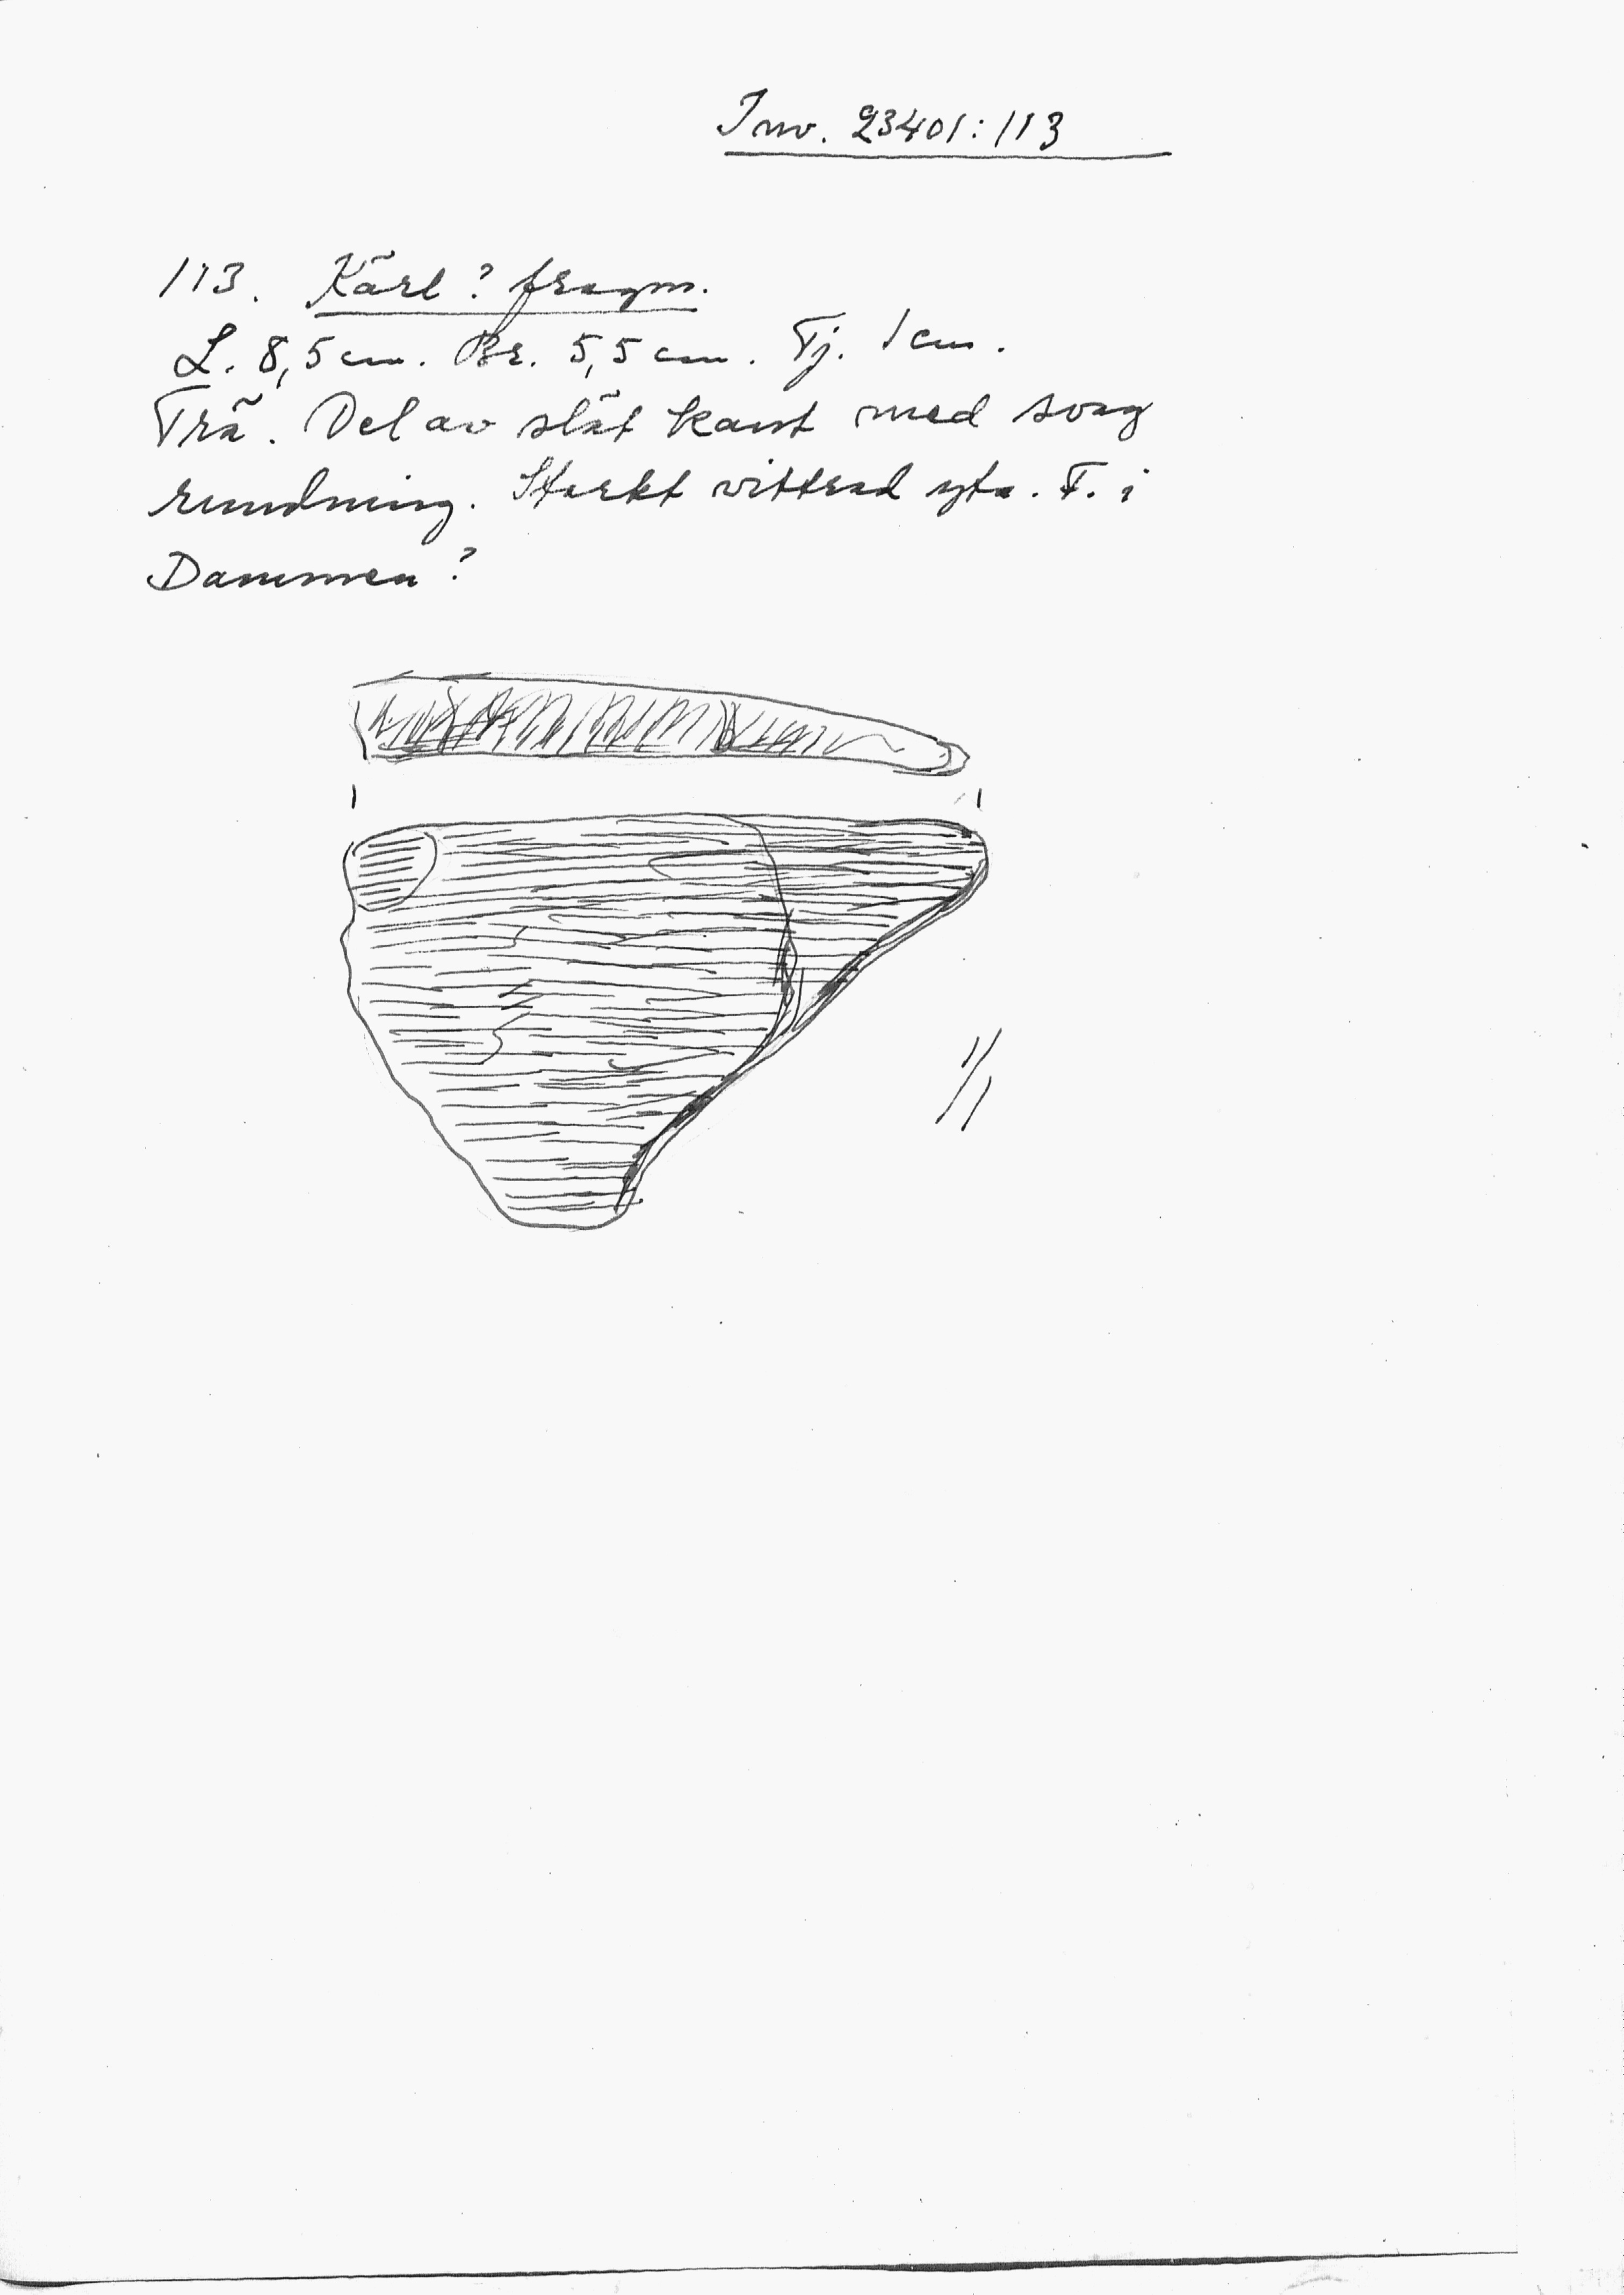 Inv. 23401:113
113. Kärl? fragm.
L. 8,5 cm. Br. 5,5 cm. Tj. 1 cm.
Trä. Del av slät kant med svag
rundning. Starkt vittrad yta. F. i
Dammen?
1/1